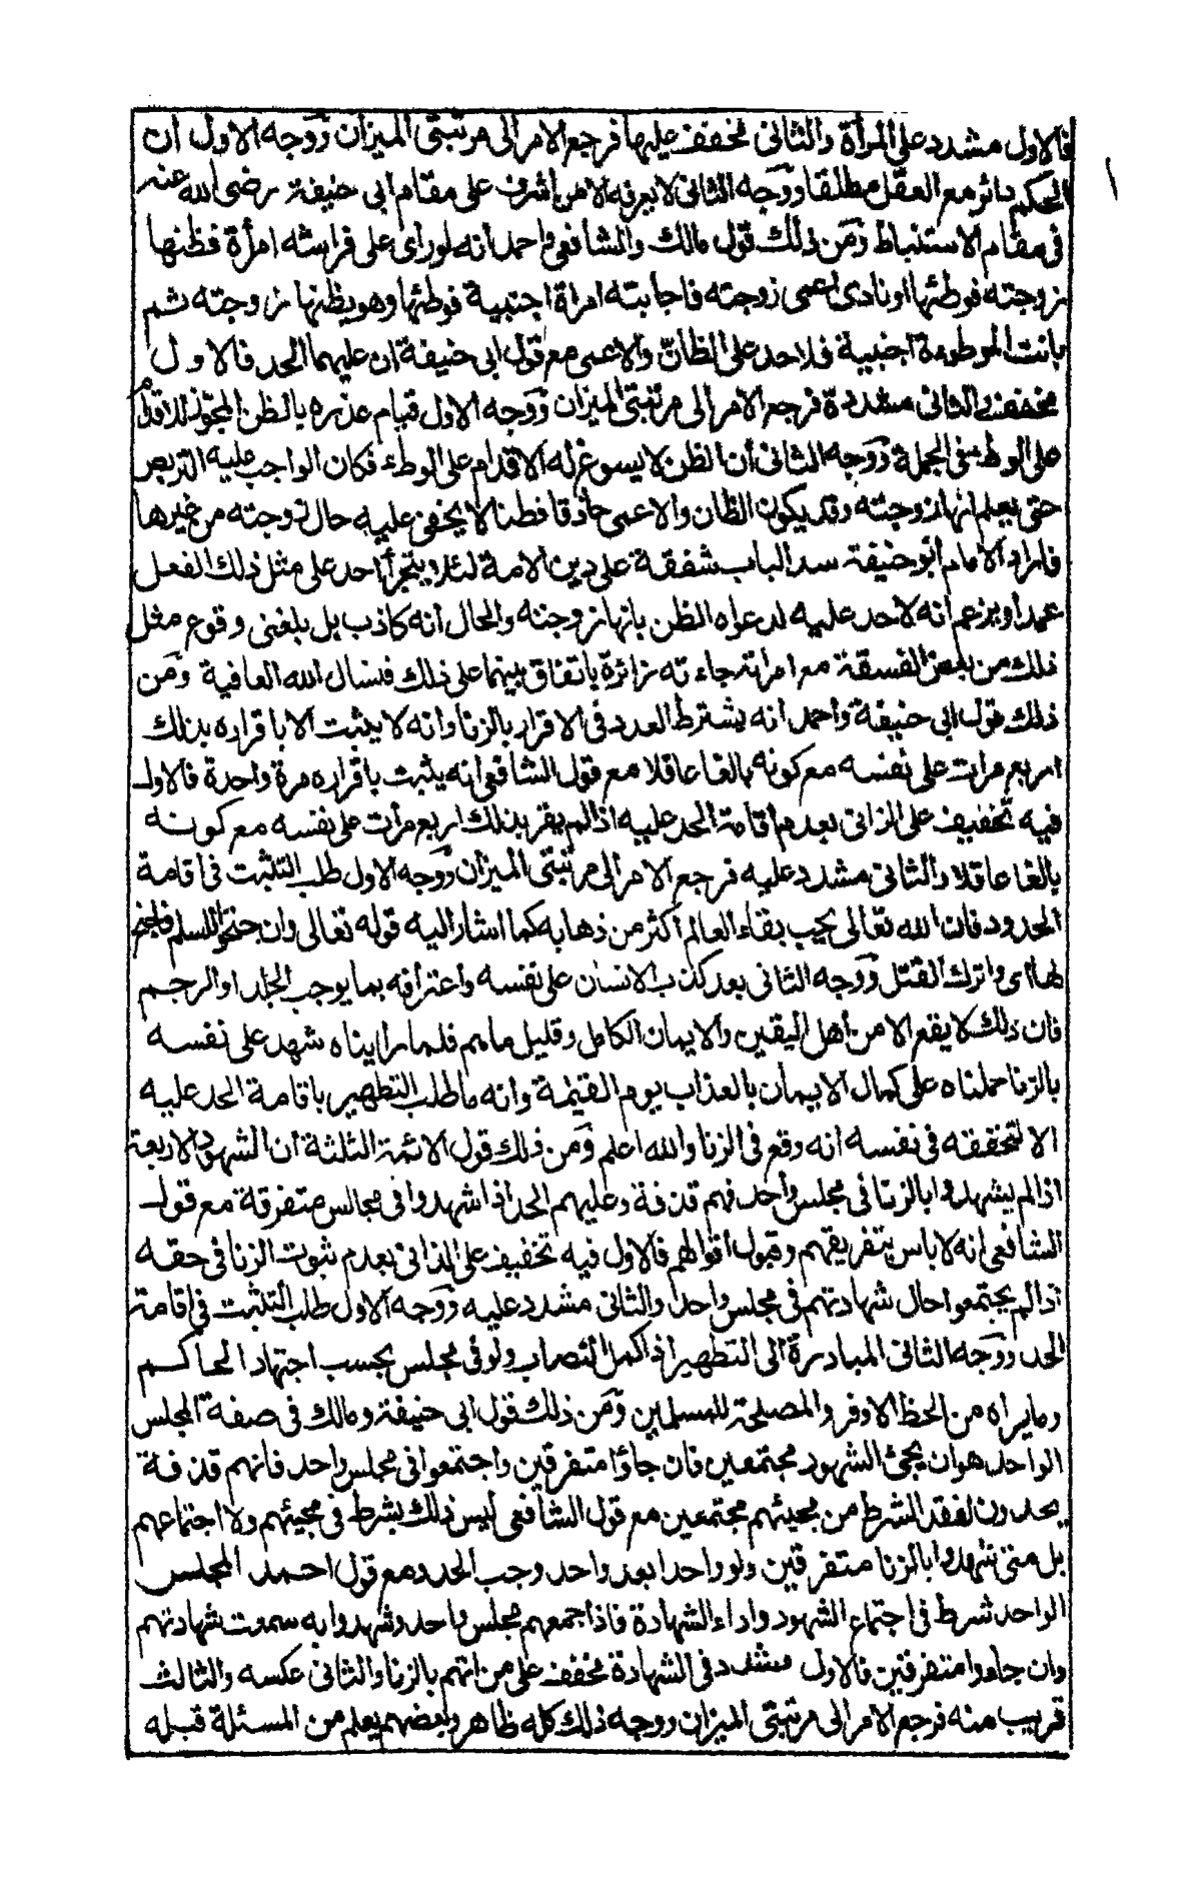 فالاول مشدد على المرأة والثانى مخفف عليها فرجع الامر الى مرتبتى الميزان ووجه الاول ان
الحكم دائر مع العقل مطلقا ووجه الثانى لا يعرفه الا من اشرف على مقام ابى حنيفة رضى الله عنه
فى مقام الاستنباط ومن ذلك قول مالك والشافعى واحمد انه لو رأى على فراشه امرأة فظنها
زوجته فوطئها او نادى اعمى زوجته فاجابته امرأة اجنبية فوطئها وهو يظنها زوجته ثم
بانت الموطوءة اجنبية فلا حد على الظان والاعمى مع قول ابى حنيفة ان عليهما الحد فالاول
مخفف والثانى مشدد فرجع الامر الى مرتبتى الميزان ووجه الاول قيام عذره بالظن المجوز للاقدام
على الوطئ فى الجملة ووجه الثانى أن الظن لا يسوغ له الاقدام على الوطء فكان الواجب عليه التربص
حتى يعلم انها زوجته وقد يكون الظان والاعمى حاذقا فطنا لا يخفى عليه حال زوجته من غيرها
فاراد الامام أبو حنيفة سد الباب شفقة على دين الامة لئلا يتجرأ احد على مثل ذلك الفعل
عمدا ويزعم انه لا حد عليه لدعواه الظن بانها زوجته والحال أنه كاذب بل بلغنى وقوع مثل
ذلك من بعض الفسقة مع امرأته جاءته زائرة باتفاق بينهما على ذلك فنسال الله العافية ومن
ذلك قول ابى حنيفة واحمد انه يشترط العدد فى الاقرار بالزنا وانه لا يثبت الا باقراره بذلك
اربع مرات على نفسه مع كونه بالغا عاقلا مع قول الشافعى انه يثبت باقراره مرة واحدة فالاول
فيه تخفيف على الزانى بعدم اقامة الحد عليه اذا لم يقر بذلك اربع مرات على نفسه مع كونه
بالغا عاقلا والثانى مشدد عليه فرجع الامر الى مرتبتى الميزان ووجه الاول طلب التثبت فى اقامة
الحدود فان الله تعالى يحب بقاء العالم أكثر من ذهابه كما اشار اليه قوله تعالى وان جنحوا للسلم فاجنح
لها اى واترك القتل ووجه الثانى بعد كذب الانسان على نفسه واعترافه بما يوجب الجلد او الرجم
فان ذلك لا يقع الا من أهل اليقين والايمان الكامل وقليل ما هم فلما رايناه شهد على نفسه
بالزنا حملناه على كمال الايمان بالعذاب يوم القيمة وانه ما طلب التطهير باقامة الحد عليه
الا لتحققه فى نفسه انه وقع فى الزنا والله اعلم ومن ذلك قول الائمة الثلثة ان الشهود الاربعة
اذا لم يشهدوا بالزنا فى مجلس واحد فهم قذفة وعليهم الحد اذا شهدوا فى مجالس متفرقة مع قول
الشافعى انه لا باس بتفريقهم وقبول أقوالهم فالاول فيه تخفيف على الزانى بعدم ثبوت الزنا فى حقه
اذا لم يجتمعوا حال شهادتهم فى مجلس واحد والثانى مشدد عليه ووجه الاول طلب التثبت فى اقامة
الحد ووجه الثانى المبادرة الى التطهير اذا كمل النصاب ولو فى مجلس بحسب اجتهاد الحاكم
وما يراه من الحظ الاوفر والمصلحة للمسلمين ومن ذلك قول ابى حنيفة ومالك فى صفة المجلس
الواحد هو ان يجئ الشهود مجتمعين فان جاؤا متفرقين واجتمعوا فى مجلس واحد فانهم قذفة
يحدون لفقد الشرط من مجيئهم مجتمعين مع قول الشافعى ليس ذلك بشرط فى مجيئهم ولا اجتماعهم
بل متى شهدوا بالزنا متفرقين ولو واحدا بعد واحد وجب الحد ومع قول احمد المجلس
الواحد شرط فى اجتماع الشهود واداء الشهادة فاذا جمعهم مجلس واحد وشهدوا به سمعت شهادتهم
وان جاءوا متفرقين فالاول مشدد فى الشهادة مخفف على من اتهم بالزنا والثانى عكسه والثالث
قريب منه فرجع الامر الى مرتبتى الميزان ووجه ذلك كله ظاهر وبعضهم يعلم من المسئلة قبله